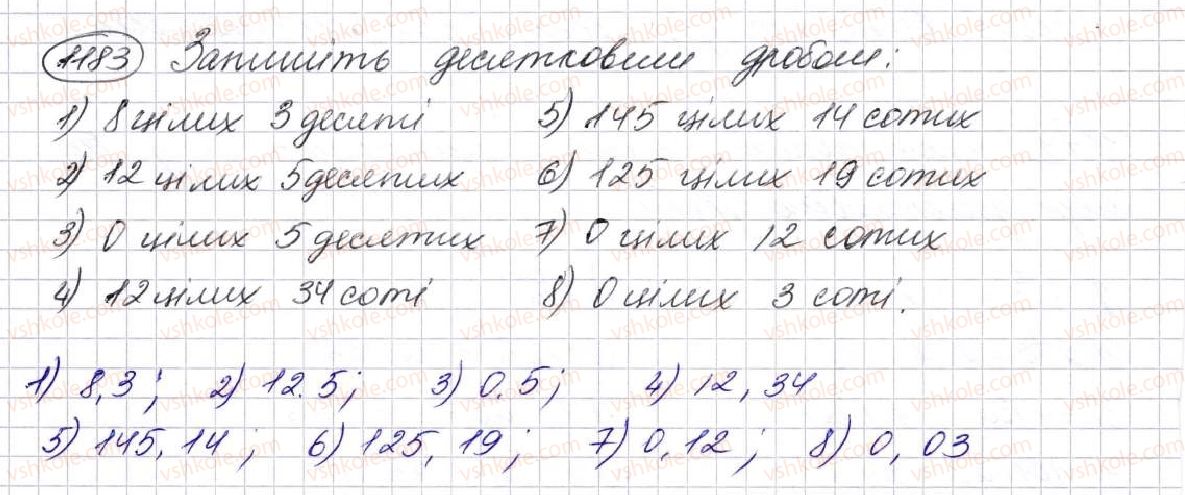 1183 Запишіть десятковим дробом:
1) 8 цілих 3 десяті 5) 145 цілих 14 сотих
2) 12 цілих 5 десятих 6) 125 цілих 19 сотих
3) 0 цілих 5 десятих 7) 0 цілих 12 сотих
4) 12 цілих 34 соті 8) 0 цілих 3 соті.
1) 8,3; 2) 12.5; 3) 0.5; 4) 12,34
5) 145,14; 6) 125,19; 7) 0,12; 8) 0,03
vshkole.com